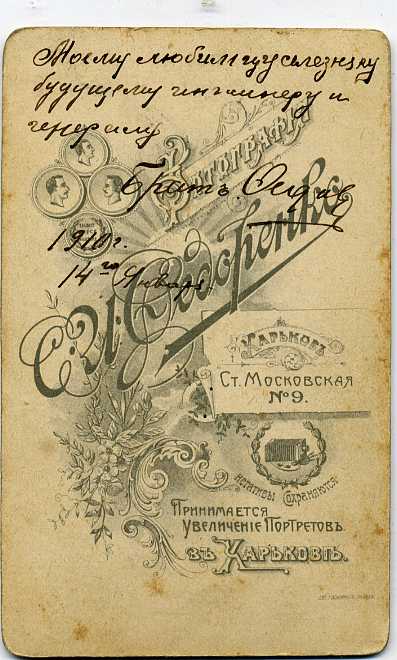 Моему любимцу
будущему инженеру и
генералу
Братъ
1910 г.
14го Января
Фотографія
С. И. Федоренко
Харьковъ
Ст. Московская
№ 9.
Негативы сохраняются
Принимается
Увеличеніе Портретовъ
въ Харьковѣ.